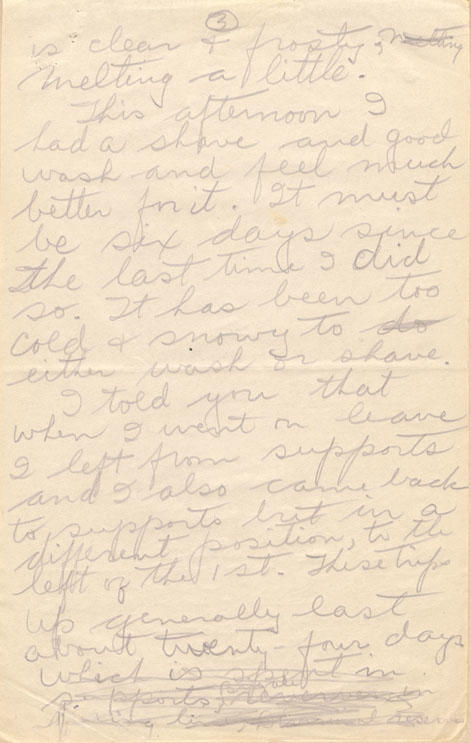 3
is clear & frosty, melting
melting a little.
This afternoon I
had a shave and good
wash and feel much
better for it. It must
be six days since
the last time I did
so. It has been too
cold & snowy to do
either wash or shave.
I told you that
when I went on leave
I left from supports
and I also came back
to supports but in a
different position, to the
left of the 1st. These trips
up generally last
about twenty-four days
which is spent in
supports,